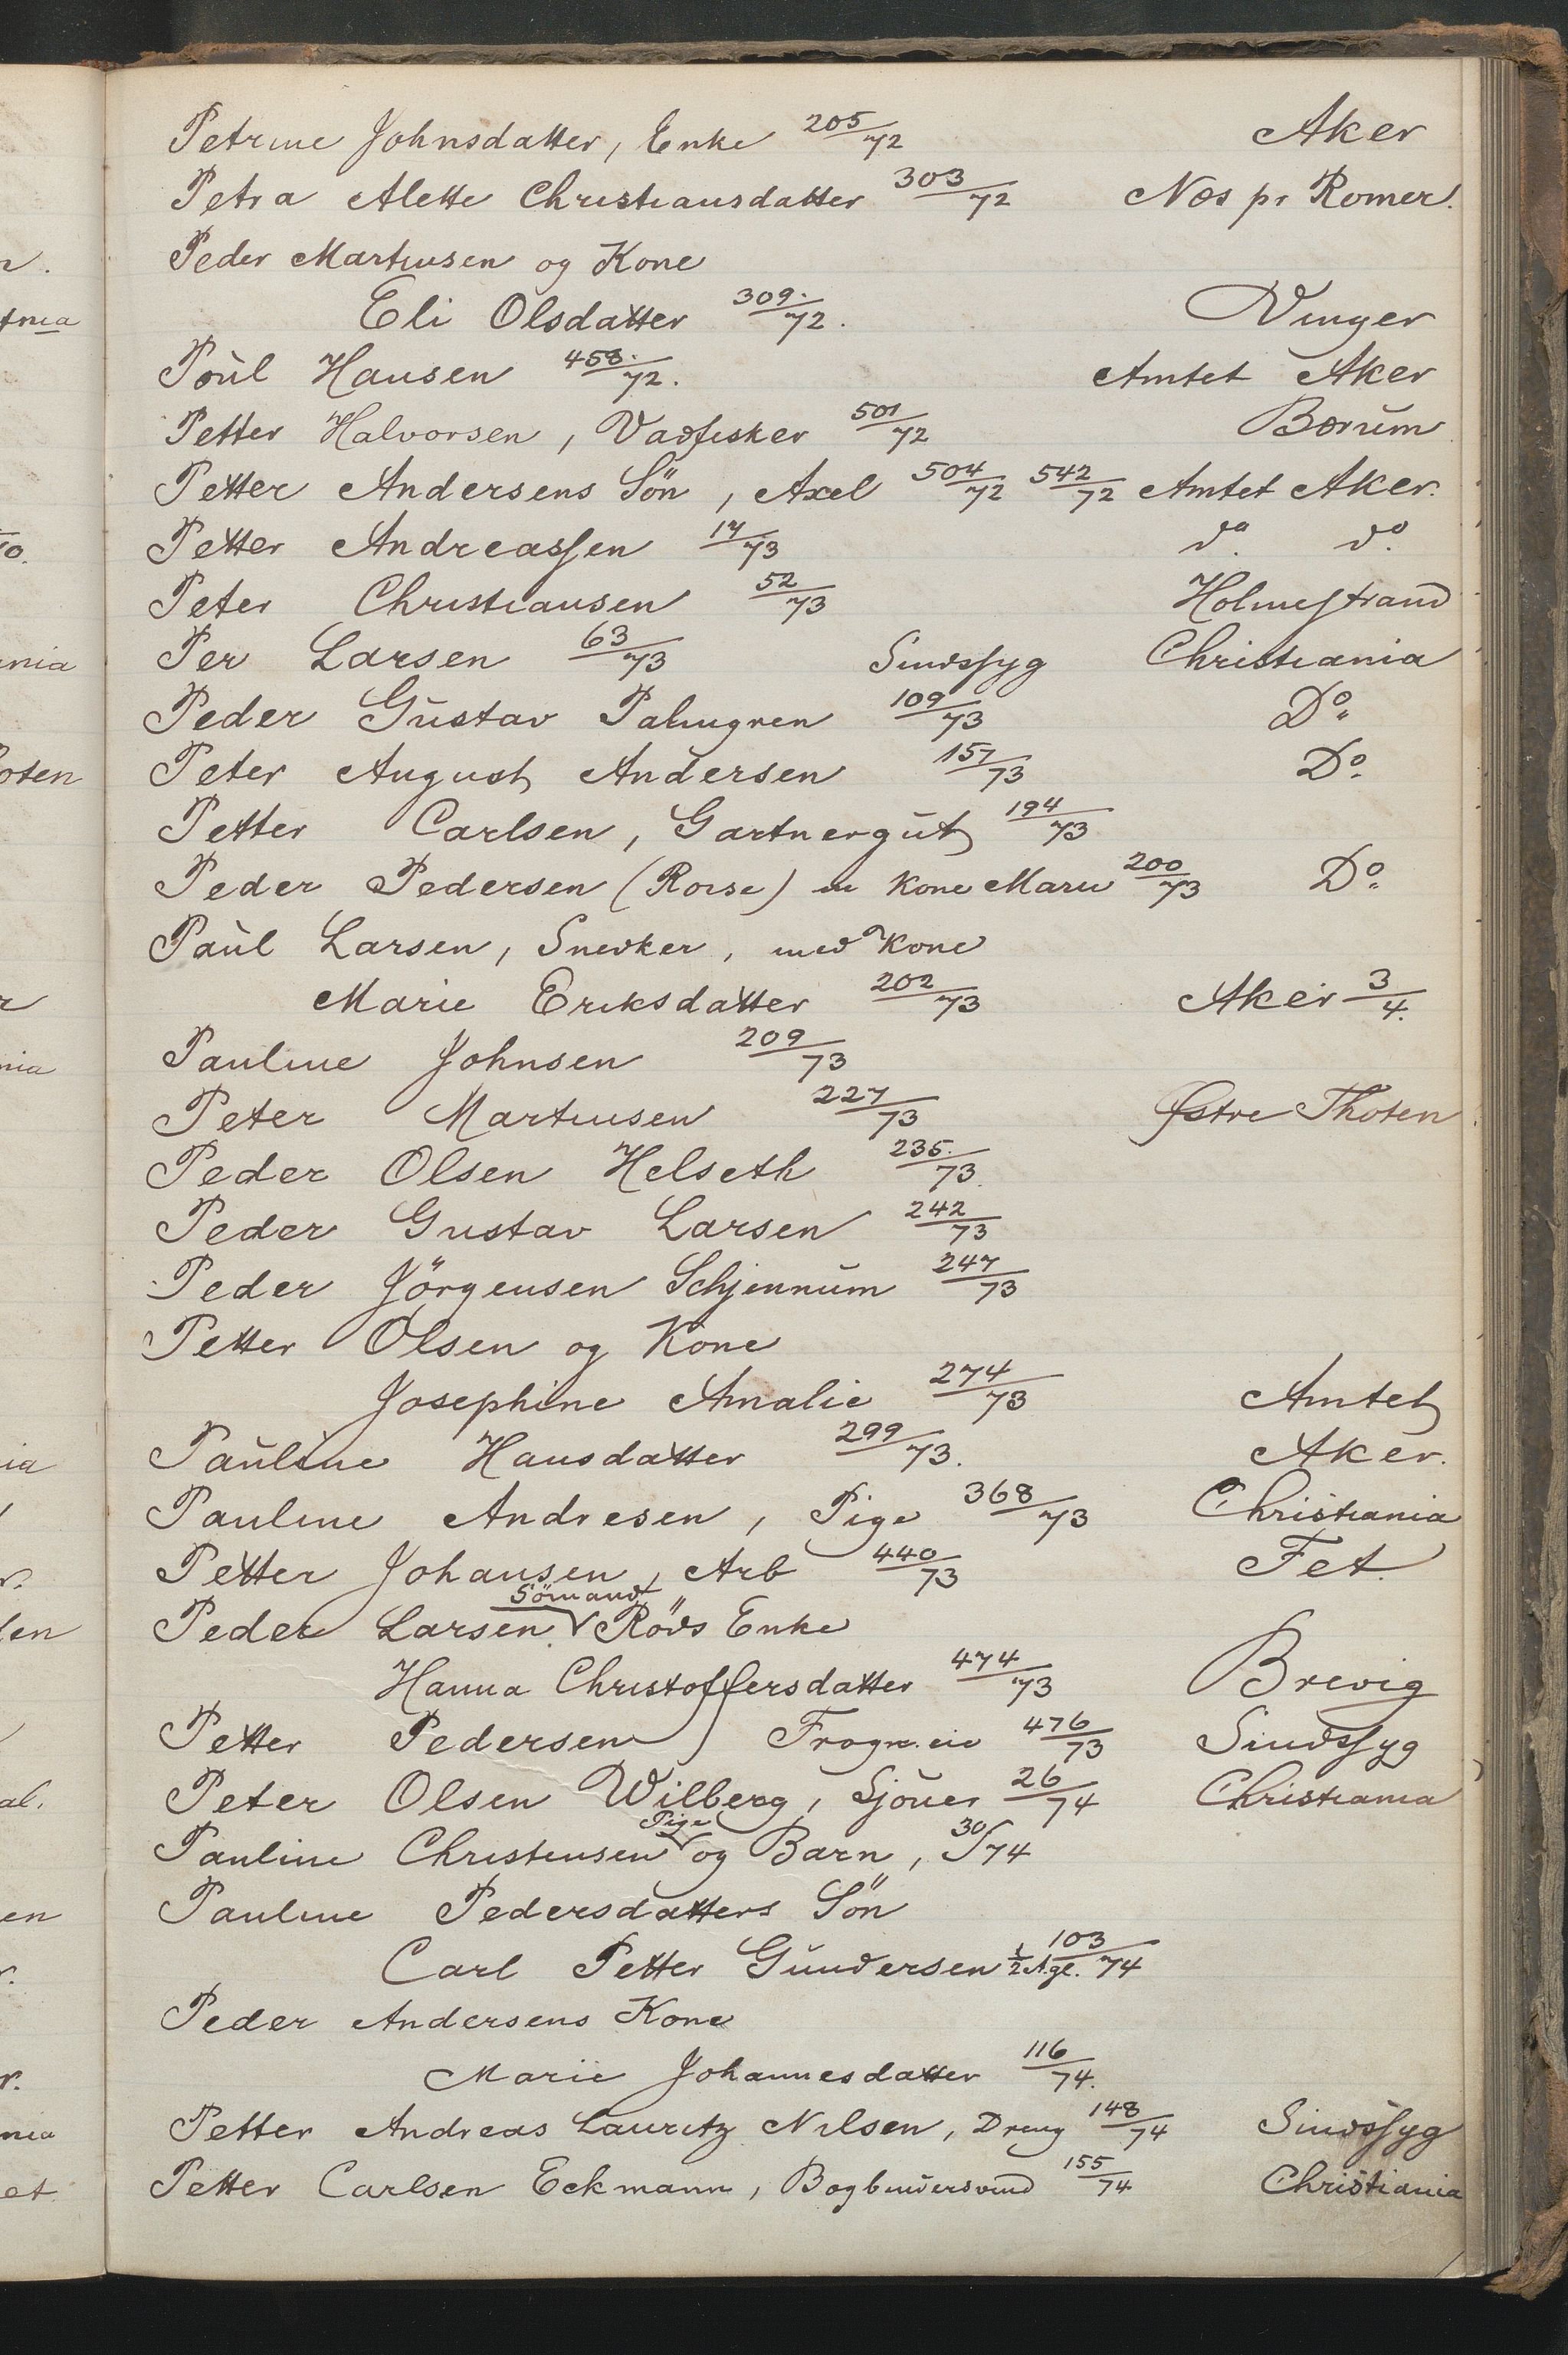 Petrine Johnsdatter, Enke 205/72 Aker
Petra Alette Christiansdatter 303/72 Næs pr Romer.
Peder Martinsen og Kone
Eli Olsdatter 309./72. Vinger
Poul Hansen 458./72. Amtet Aker
Petter Halvorsen, Vadfisker 501/72 Bærum
Petter Andersens Sön, Axel 504/72 542/72 Amtet Aker.
Petter Andreassen 17/73 do. do.
Peter Christiansen 52/73 Holmestrand
Per Larsen 63/73 Sindssyg Christiania
Peder Gustav Palmgren 109/73 Do.
Peter August Andersen 157/73 Do.
Petter Carlsen, Gartnergut 194/73
Peder Pedersen (Roise) m Kone Marie 200/73 Do.
Paul Larsen, Snedker, med Kone
Marie Eriksdatter 202/73 Aker 3/4.
Pauline Johnsen 209/73
Peter Martinsen 227/73 Østre Thoten
Peder Olsen Helseth 235./73.
Peder Gustav Larsen 242/73
Peder Jörgensen Schjennum 247/73
Petter Olsen og Kone
Josephine Amalie 274/73 Amtet
Pauline Hansdatter 299/73. Aker.
Pauline Andresen, Pige 368/73 Christiania
Petter Johansen, Arb 440/73 Fet.
Peder Larsen Sömand Röds Enke
Hanna Christoffersdatter 474/73 Brevig
Petter Pedersen, Frogn.eie 476/73 Sindssyg
Peter Olsen Wilberg, Sjouer 26/74 Christiania
Pauline Christensen Pige og Barn, 30/74
Pauline Pedersdatters Sön
Carl Petter Gundersen 1/2 A.gl. 103/74
Peder Andersens Kone
Marie Johannesdatter 116/74.
Petter Andreas Lauritz Nilsen, Dreng 148/74 Sindssyg
Petter Carlsen Eckmann, Bogbindersvend 155/74 Christiania